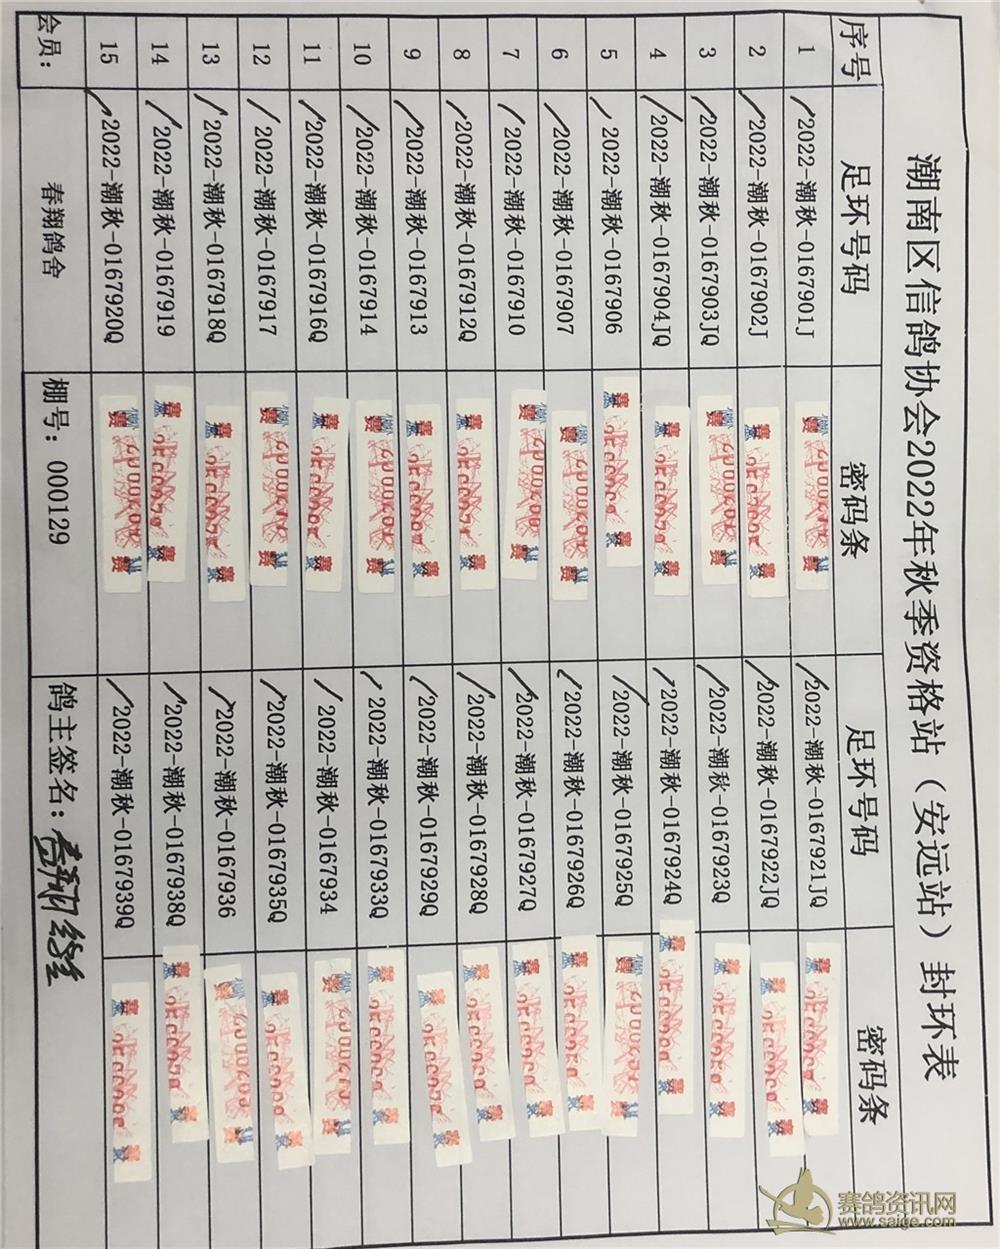 潮南区信鸽协会2022年秋季资格站（安远站）封环表
序号 足环号码 密码条 足环号码 密码条
1 2022-潮秋-0167901J 2022-潮秋-0167921JQ
2 2022-潮秋-0167902J 2022-潮秋-0167922JQ
3 2022-潮秋-0167903JQ 2022-潮秋-0167923Q
4 2022-潮秋-0167904JQ 2022-潮秋-0167924Q
5 2022-潮秋-0167906 2022-潮秋-0167925Q
6 2022-潮秋-0167907 2022-潮秋-0167926Q
7 2022-潮秋-0167910 2022-潮秋-0167927Q
8 2022-潮秋-0167912Q 2022-潮秋-0167928Q
9 2022-潮秋-0167913 2022-潮秋-0167929Q
10 2022-潮秋-0167914 2022-潮秋-0167933Q
11 2022-潮秋-0167916Q 2022-潮秋-0167934
12 2022-潮秋-0167917 2022-潮秋-0167935Q
13 2022-潮秋-0167918Q 2022-潮秋-0167936
14 2022-潮秋-0167919 2022-潮秋-0167938Q
15 2022-潮秋-0167920Q 2022-潮秋-0167939Q
会员： 春翔鸽舍 棚号：000129 鸽主签名：
赛鸽资讯网
www.saige.com